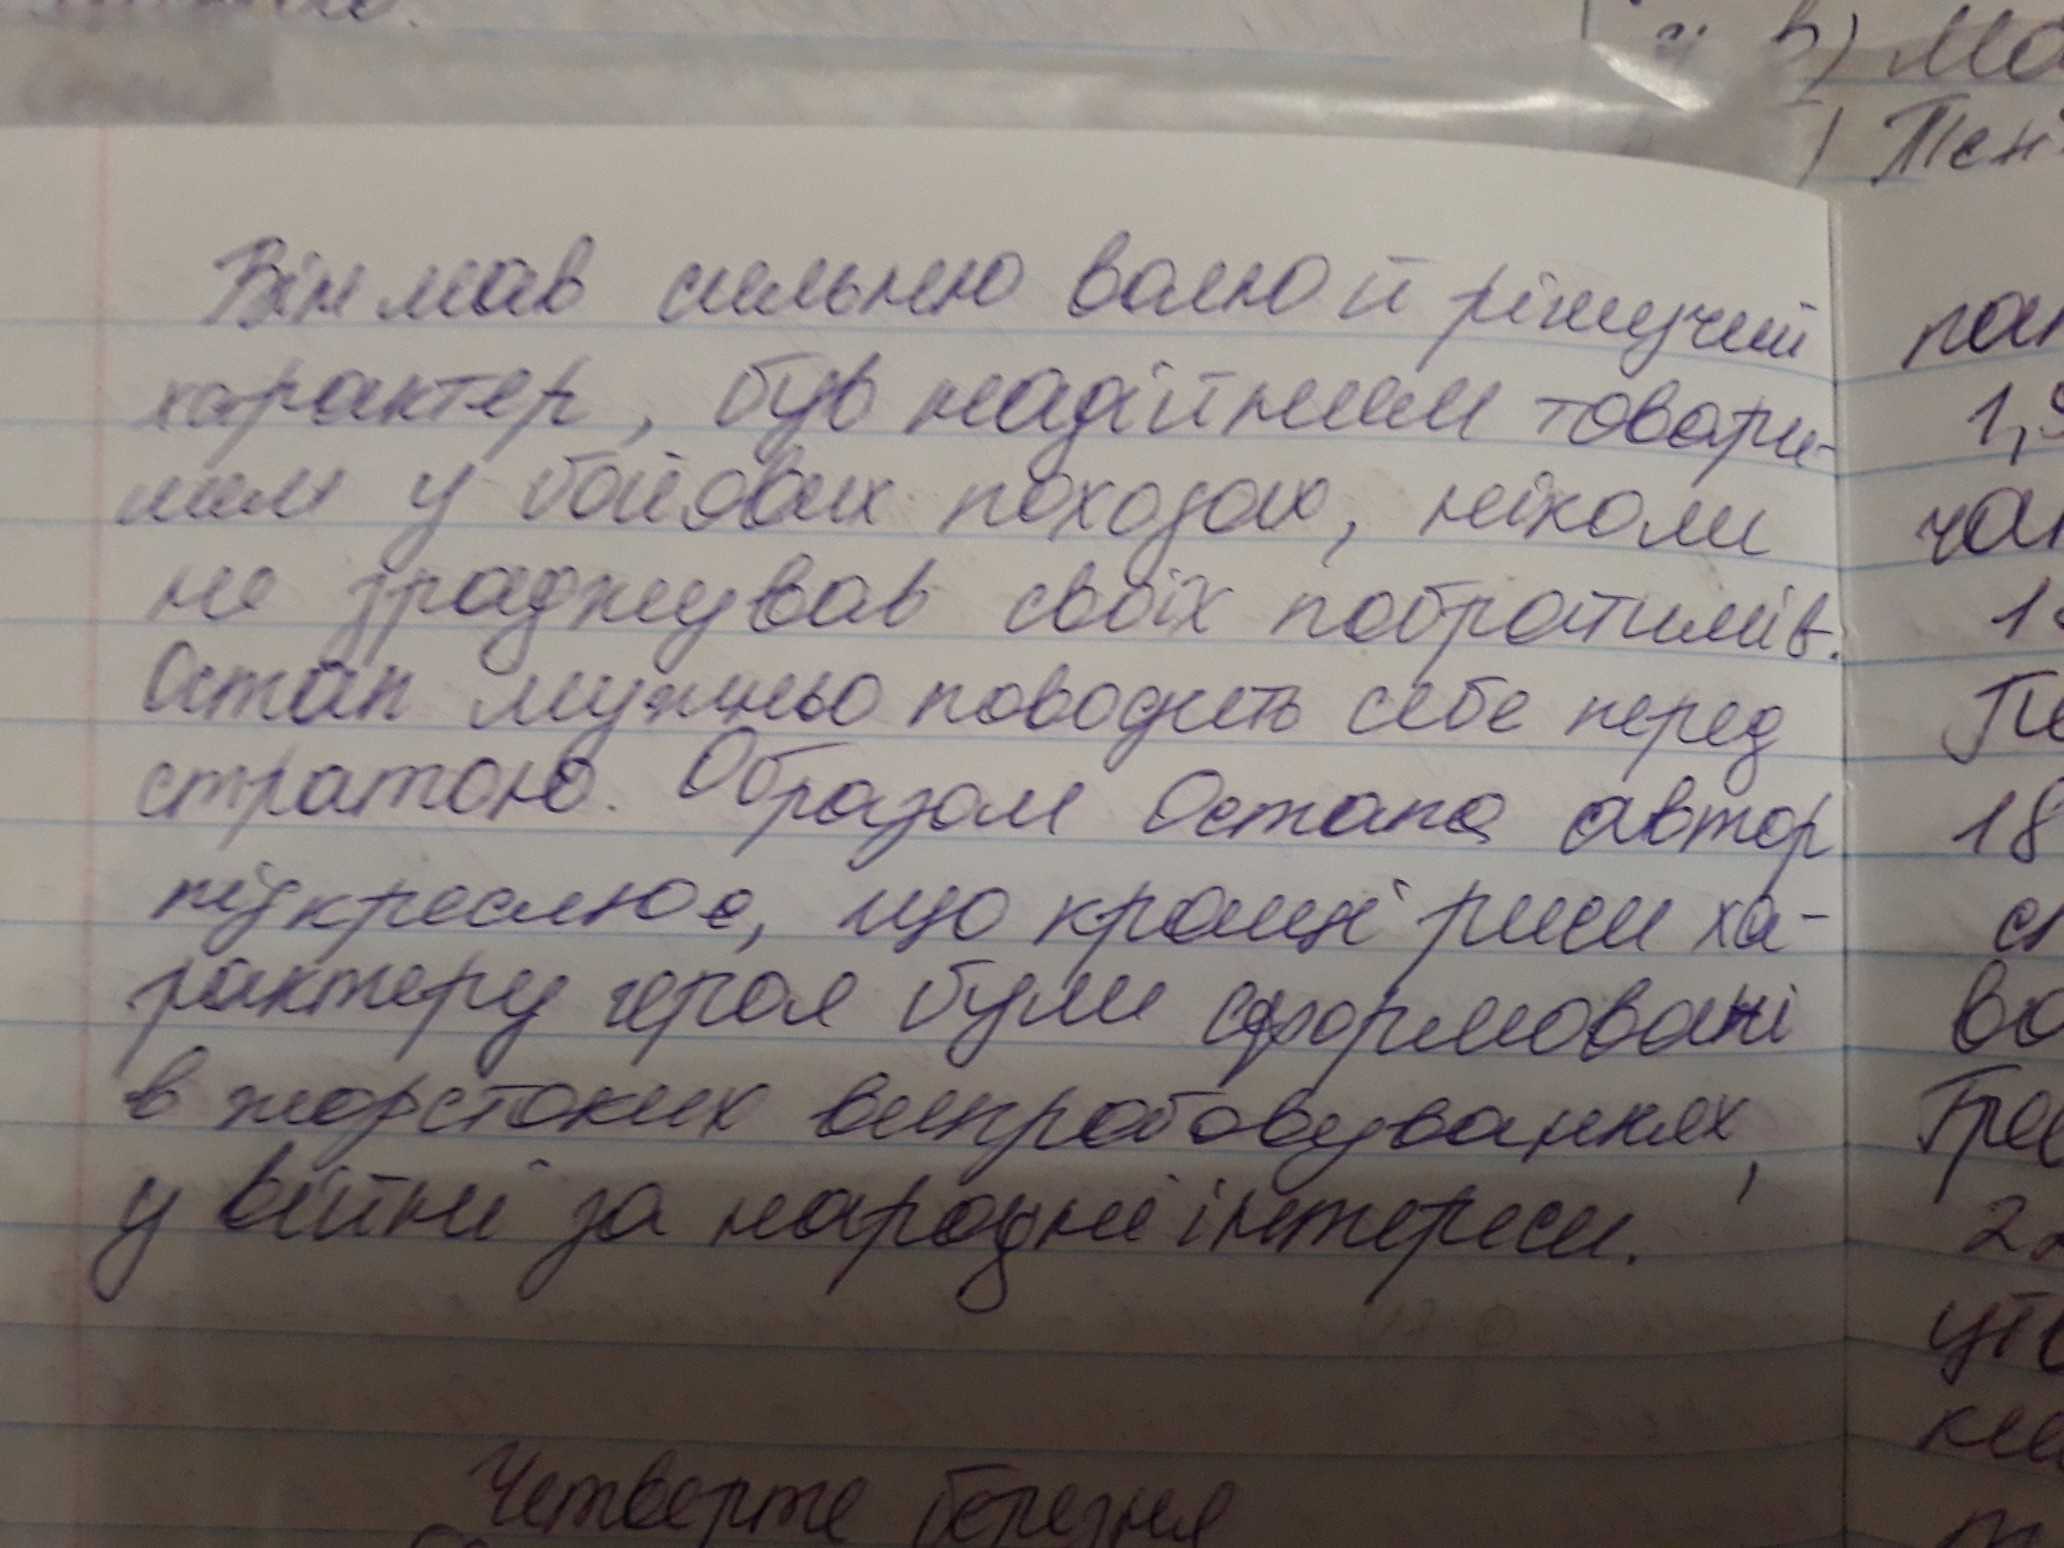 в) Ма
Тен
Він мав сильню волю й рішучий
характер, був надійним товари-
шем у бойових походах, ніколи
не зраджував своїх побратимів.
Остап мужньо поводить себе перед
стратою. Образом Остапа автор
підкреслює, що кращі риси ха-
рактеру героя були сформовані
в жорстоких випробовуваннях,
у війні за народні інтереси.
Четверте березня
пан
1,
чан
1
Пе
18
сп
во
Гре
22
утв